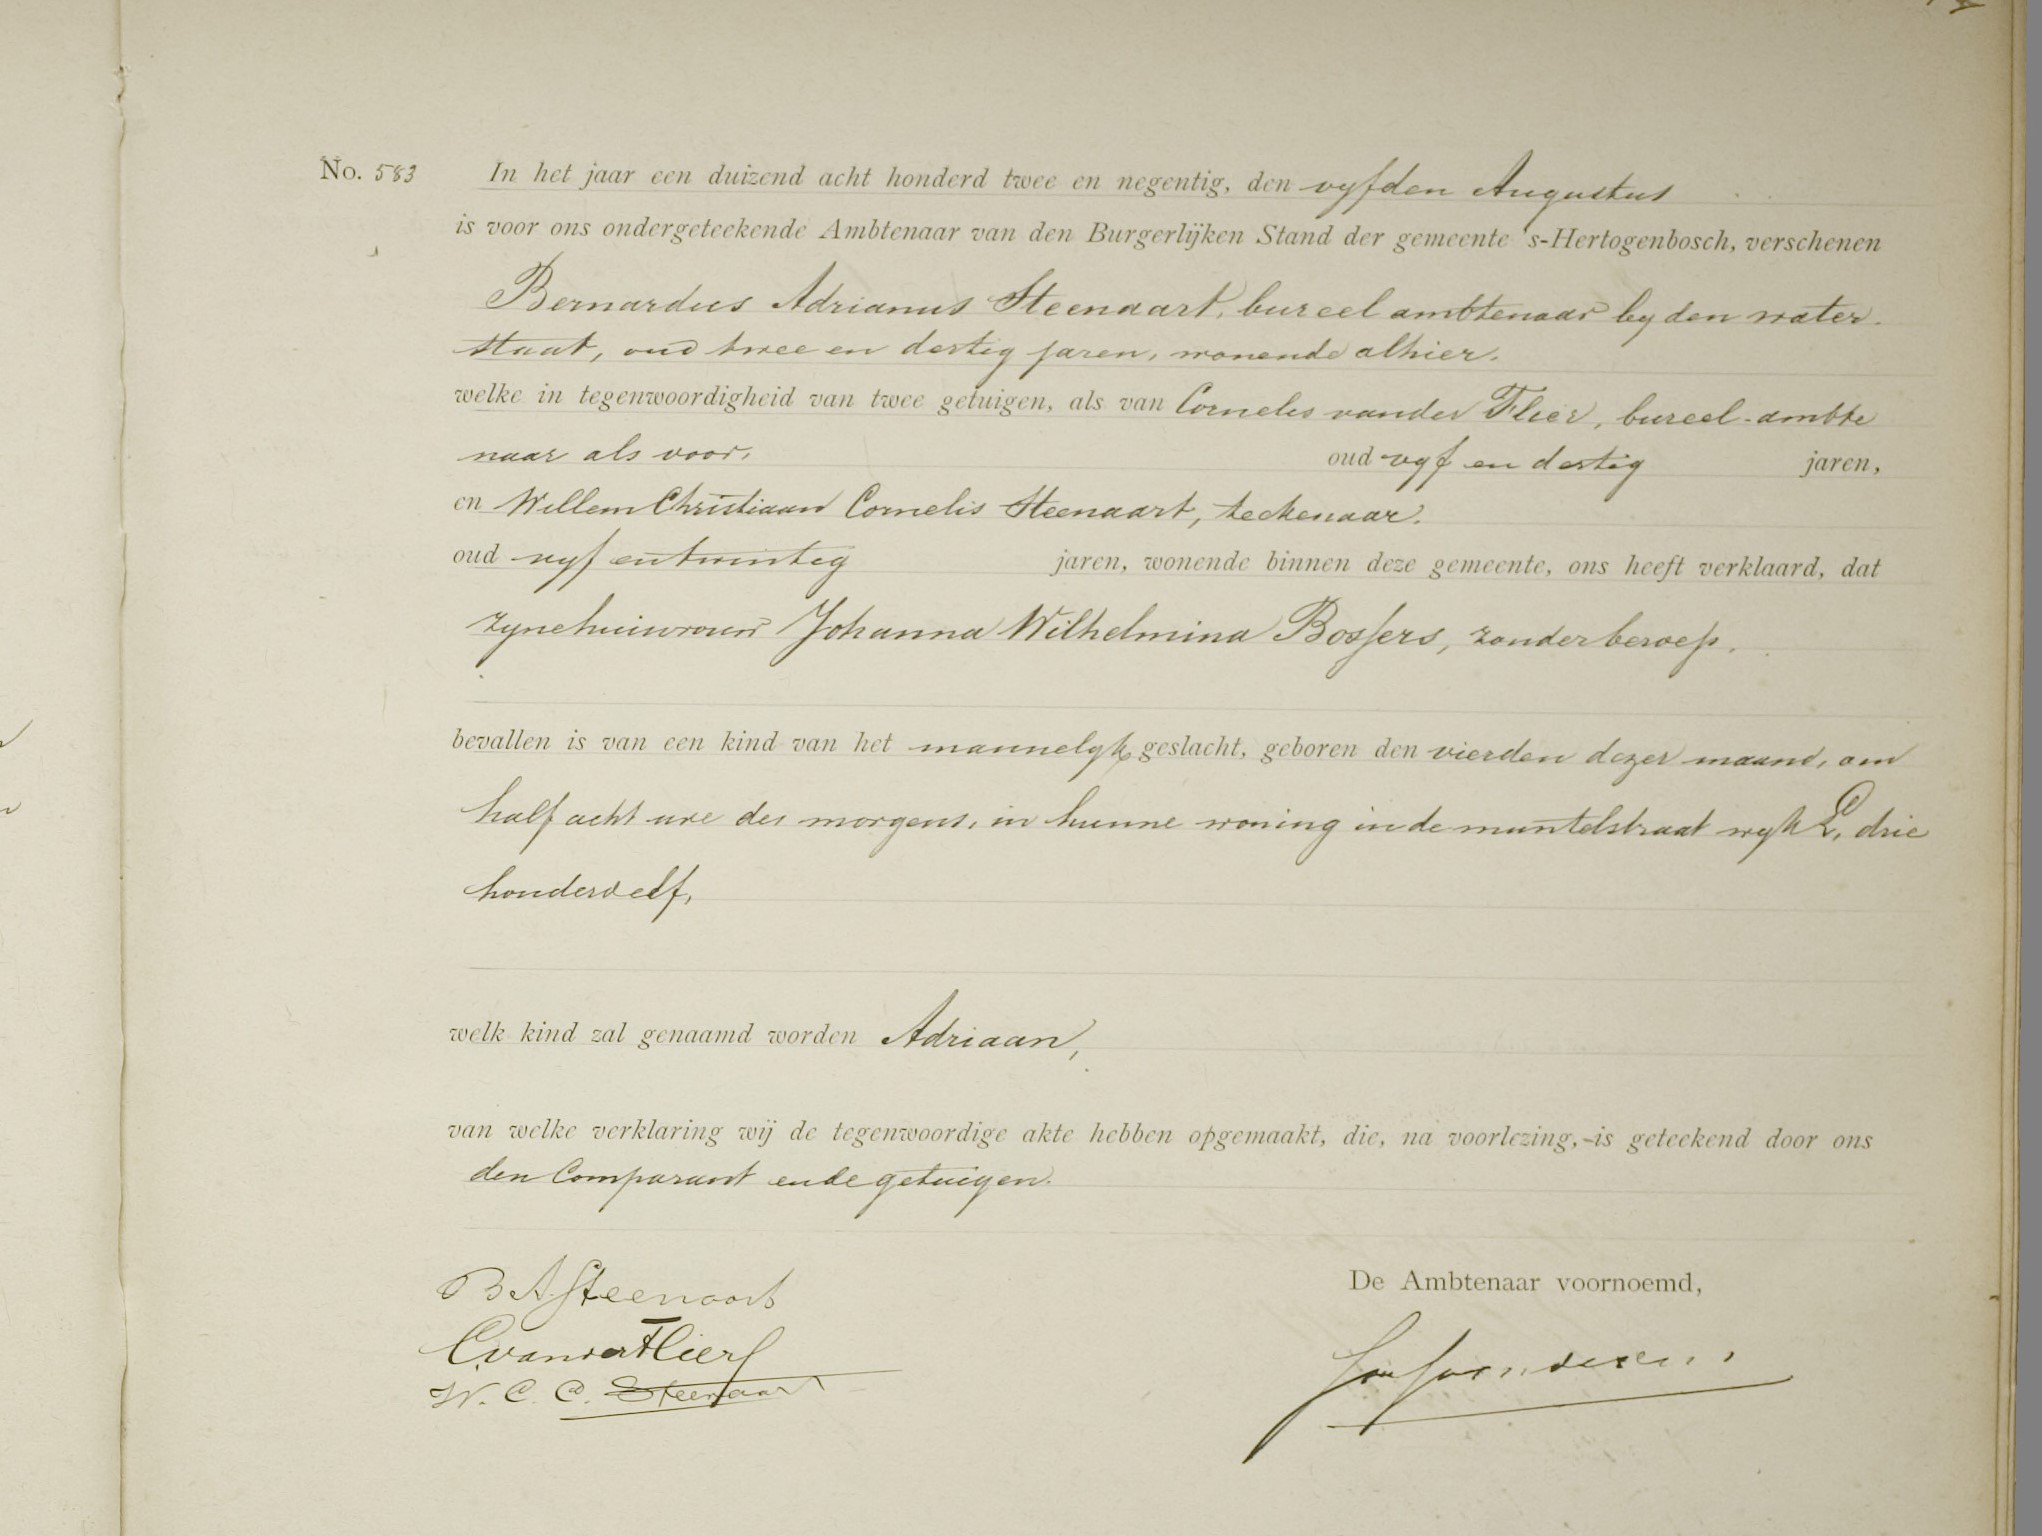 No. 583 In het jaar een duizend acht honderd twee en negentig, den vyfden Augustus
is voor ons ondergeteekende Ambtenaar van den Burgerlijken Stand der gemeente 's-Hertogenbosch, verschenen
Bernardus Adrianus Steenaart, bureel ambtenaar by den water-
staat, oud twee en dertig jaren, wonende alhier.
welke in tegenwoordigheid van twee getuigen, als van Cornelis vander Flier, bureel-ambte
naar als voor, oud vyf en dertig jaren,
en Willem Christiaan Cornelis Steenaart, teekenaar.
oud vyf entwintig jaren, wonende binnen deze gemeente, ons heeft verklaard, dat
zynehuisvrouw Johanna Wilhelmina Bossers, zonder beroep.
bevallen is van een kind van het mannelyk geslacht, geboren den vierden dezer maand, om
half acht ure des morgens, in hunne woning in de muntelstraat wyk L, drie
honderd elf,
welk kind zal genaamd worden Adriaan,
van welke verklaring wij de tegenwoordige akte hebben opgemaakt, die, na voorlezing, is geteekend door ons
den Comparant en de getuigen.
B A Steenaart
De Ambtenaar voornoemd,
C. vander Flier
W. C. C. Steenaart